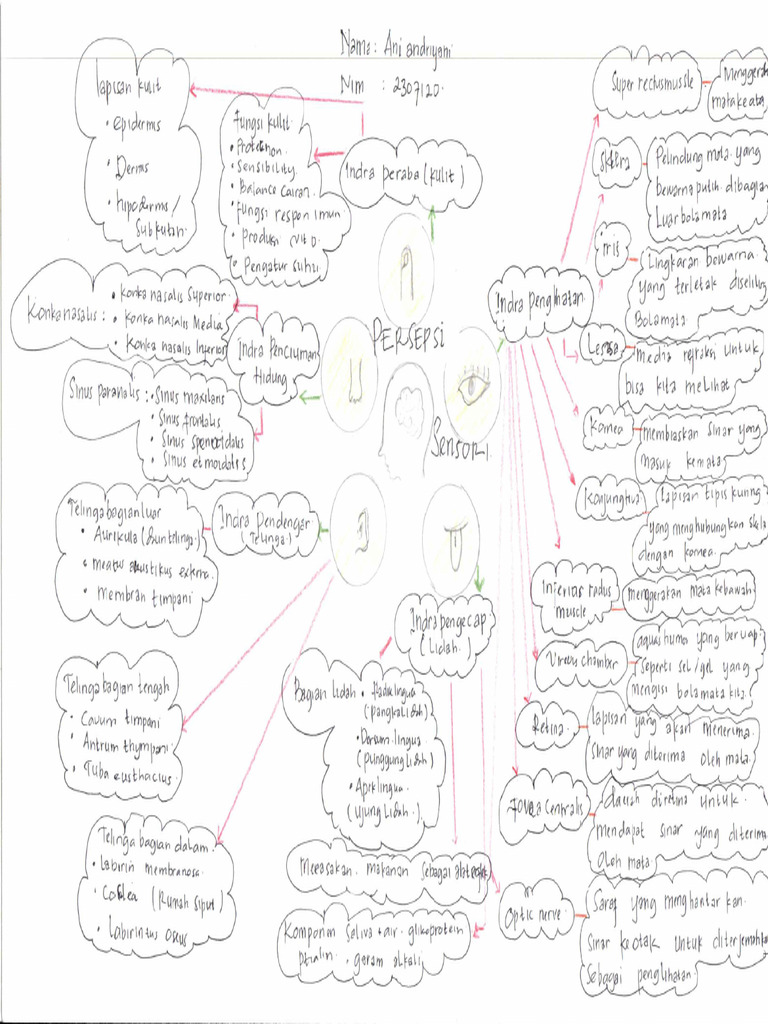 Nama : Ani andriyani
Nim : 2307120.
lapisan kulit
• epidermis
• Dermis
• hipodermis /
Subkutan.
Fungsi kulit
• Protektion.
• Sensibility.
• Balance Cairan.
• Fungsi respon imun
• Produksi Vit D.
• Pengatur Suhu
Indra peraba (kulit)
Konka nasalis :
• Konka nasalis Superior.
• Konka nasalis Media
• Konka nasalis Inferior
Indra Penciuman
Hidung
Sinus paranalis :
• Sinus maxilaris
• Sinus frontalis
• Sinus spenoidalis
• Sinus etmoidalis
PERSEPSI
Sensori
Telinga bagian luar
• Aurikula (Daun telinga)
• meatus akustikus externa.
• membran timpani
Indra Pendengar
(Telinga)
Telinga bagian tengah
• Cavum timpani
• Antrum thympani
• Tuba eusthacius
Telinga bagian dalam.
• Labirin membranosa.
• Coclea (Rumah siput)
• Labirintus Oseus
Indra pengecap
(Lidah.)
Bagian Lidah
• Radix lingua
(Pangkal Lidah)
• Dorsum lingua
(punggung Lidah)
• Apek lingua
(Ujung Lidah.)
Merasakan makanan sebagai
Komponen Saliva + air. glikoprotein
ptialin. • garam alkali
Indra Penglihatan.
Super rectus mussle
Menggerak
mata keata
Sklera
Pelindung mata yang
bewarna putih. dibagian
Luar bola mata
Irris
Lingkaran bewarna
yang terletak diseliling
Bola mata.
Lensa
media refraksi untuk
bisa kita meLihat
Kornea
membiaskan Sinar yang
masuk kemata
Konjungtiva
Lapisan tipis kuning
yang menghubungkan Skla
dengan kornea.
Inferius radus
muscle
menggerakan mata kebawah
Vitreus chamber
aquos humo yang beruap.
Seperti sel/gel yang
mengisi bola mata kita.
Retina
Lapisan yang akan menerima
Sinar yang diterima oleh mata.
Fovea Centralis
daerah diretina untuk.
mendapat Sinar yang diterima
Oleh mata
Optic nerve
Saraf yang menghantarkan.
Sinar keotak Untuk diterjemahkan
Sebagai penglihatan.